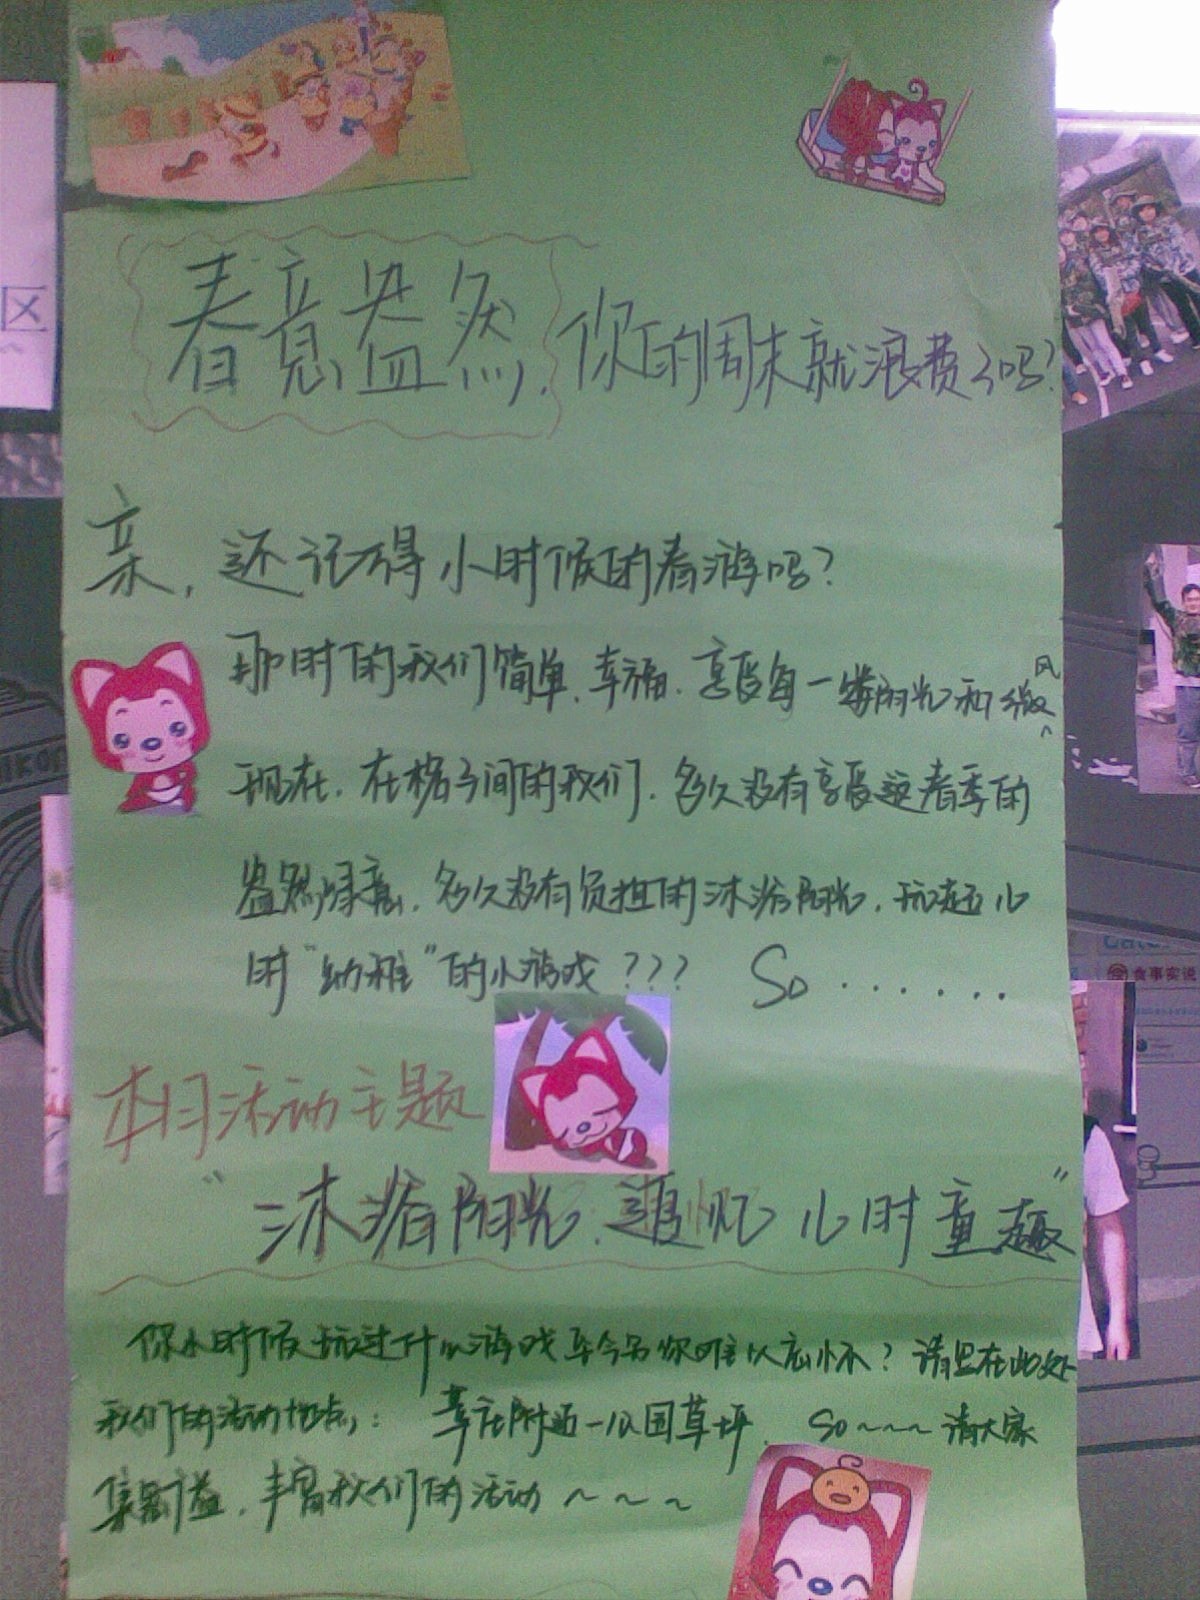 春意盎然,你的周末就浪费了吗?
亲,还记得小时候的春游吗?
那时的我们简单、幸福、享受每一缕阳光和微风
现在,在格子间的我们,多久没有享受这春季的
盎然绿意,多久没有负担的沐浴阳光,玩起儿
时“幼稚”的小游戏???  So......
本月活动主题
“沐浴阳光、追忆儿时童趣”
你小时候玩过什么游戏至今另你难以忘怀?请写在此处
我们的活动地点:  莘庄附近一公园草坪. So~~~请大家
集思广益,丰富我们的活动~~~
区
食事实说